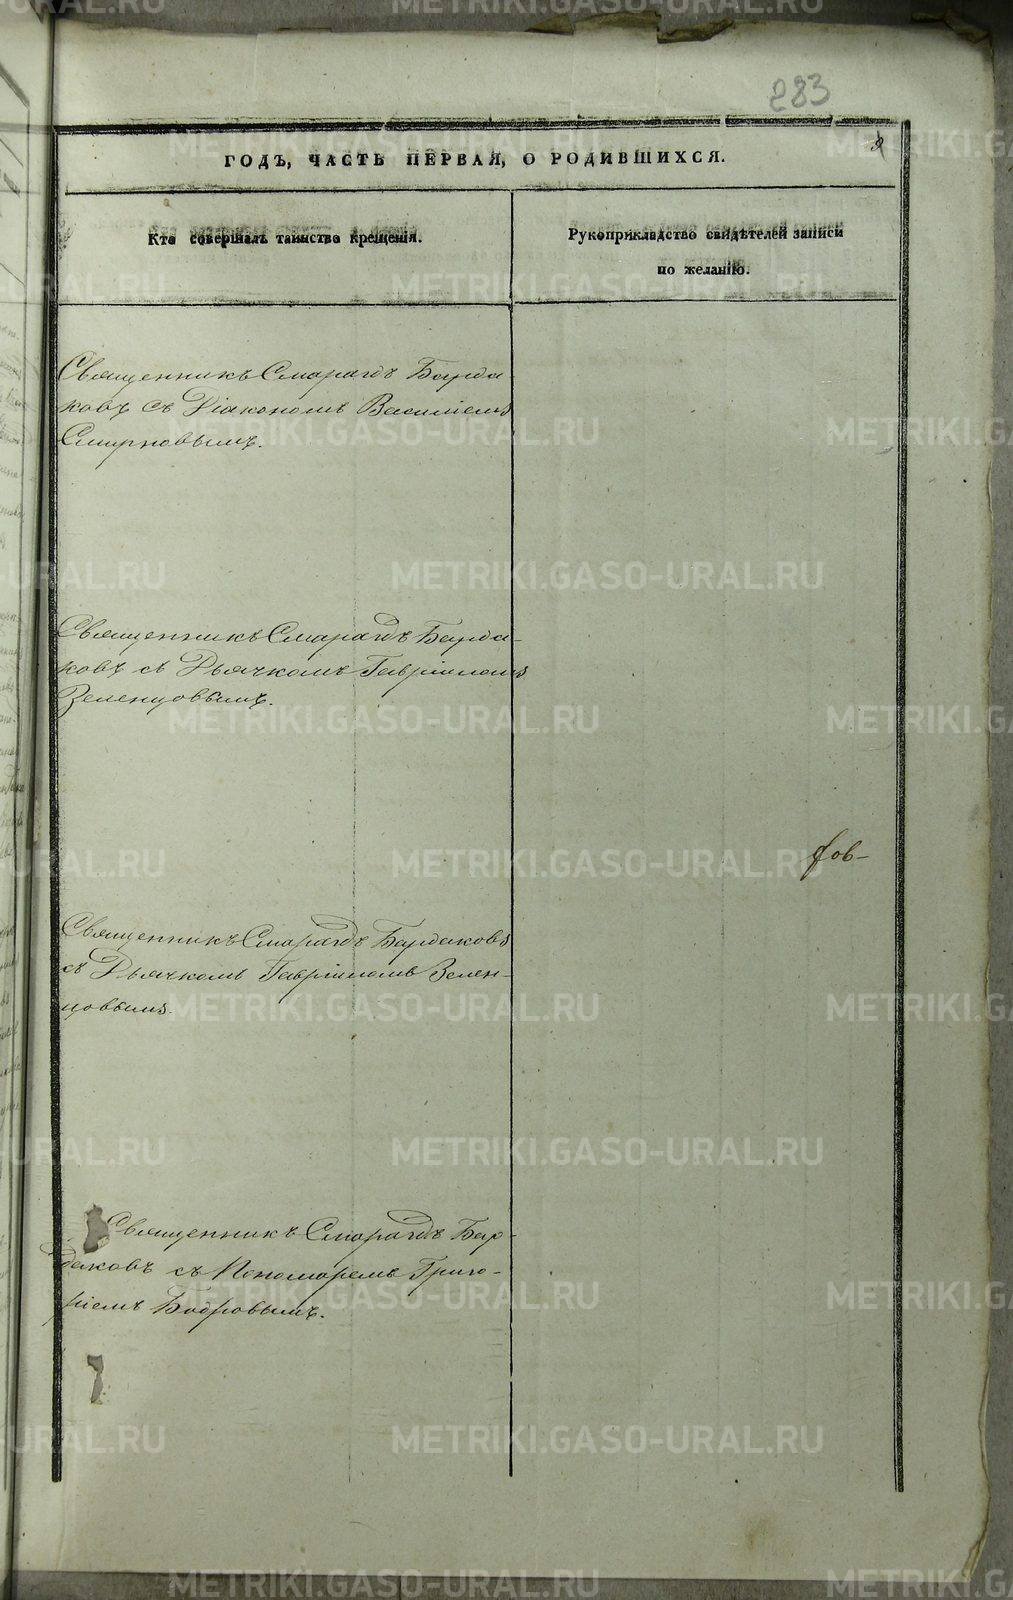 283
ГОДЪ, ЧАСТЬ ПЕРВАЯ, О РОДИВШИХСЯ.
Кто совершалъ таинство крещенія.
Рукоприкладство свидѣтелей записи
по желанію.
Священникъ Смарагдъ Барда-
ковъ съ Діакономъ Василіемъ
Смирновымъ.
Священникъ Смарагдъ Барда-
ковъ съ Дьячкомъ Гавріиломъ
Зеленцовымъ.
Священникъ Смарагдъ Бардаковъ
съ Дьячкомъ Гавріиломъ Зелен-
цовымъ.
Священникъ Смарагдъ Бар-
даковъ съ Пономаремъ Григо-
ріемъ Бодровымъ.
METRIKI.GASO-URAL.RU